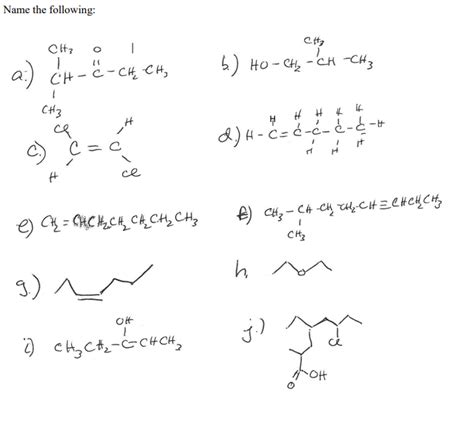 Name the following:
a.) CH3 O
CH - C - CH2 CH3
CH3
b.) HO - CH2 - CH - CH3
CH3
c.) Cl H
C = C
H Cl
d.) H - C = C - C - C - C - H
H H H H H
H H H
e) CH2 = CHCH2CH2CH2CH2CH3
f) CH3 - CH - CH2 - CH2 - CH ≡ CHCH2CH3
CH3
g.)
h, O
i) OH
CH3CH2 - C - CHCH3
j.) Cl
O OH